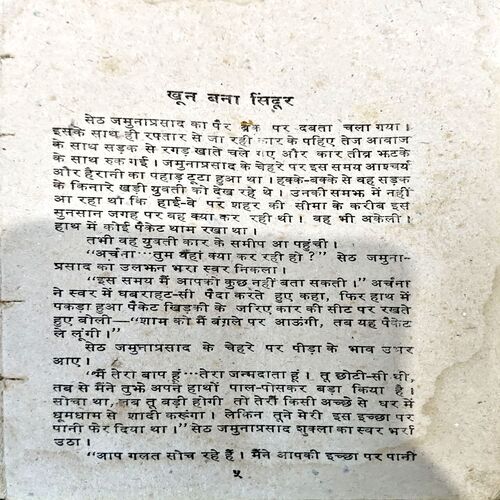 खून बना सिंदूर
सेठ जमुनाप्रसाद का पैर ब्रेक पर दबता चला गया।
इसके साथ ही रफ्तार से जा रही कार के पहिए तेज आवाज
के साथ सड़क से रगड़ खाते चले गए और कार तीव्र झटके
के साथ रुक गई। जमुनाप्रसाद के चेहरे पर इस समय आश्चर्य
और हैरानी का पहाड़ टूटा हुआ था। हक्के-बक्के से वह सड़क
के किनारे खड़ी युवती को देख रहे थे। उनकी समझ में नहीं
आ रहा था कि हाई-वे पर शहर की सीमा के करीब इस
सुनसान जगह पर वह क्या कर रही थी। वह भी अकेली।
हाथ में कोई पैकेट थाम रखा था।
तभी वह युवती कार के समीप आ पहुंची।
“अर्चना···तुम यहां क्या कर रही हो?” सेठ जमुना-
प्रसाद का उलझन भरा स्वर निकला।
“इस समय मैं आपको कुछ नहीं बता सकती।” अर्चना
ने स्वर में घबराहट-सी पैदा करते हुए कहा, फिर हाथ में
पकड़ा हुआ पैकेट खिड़की के जरिए कार की सीट पर रखते
हुए बोली—“शाम को मैं बंगले पर आऊंगी, तब यह पैकेट
ले लूंगी।”
सेठ जमुनाप्रसाद के चेहरे पर पीड़ा के भाव उभर
आए।
“मैं तेरा बाप हूं···तेरा जन्मदाता हूं। तू छोटी-सी थी,
तब से मैंने तुझे अपने हाथों पाल-पोसकर बड़ा किया है।
सोचा था, जब तू बड़ी होगी तो तेरी किसी अच्छे से घर में
धूमधाम से शादी करूंगा। लेकिन तूने मेरी इस इच्छा पर
पानी फेर दिया था।” सेठ जमुनाप्रसाद शुक्ला का स्वर भर्रा
उठा।
“आप गलत सोच रहे हैं। मैंने आपकी इच्छा पर पानी
५